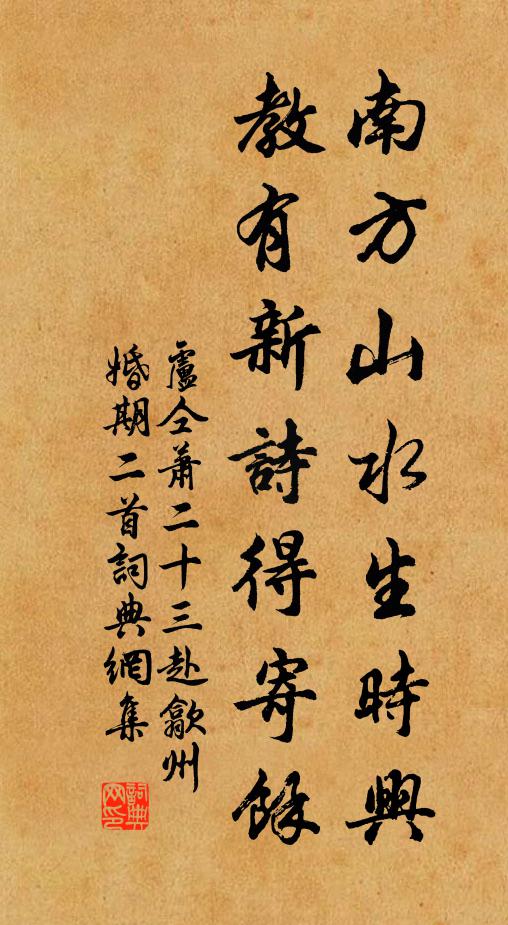 南方山水生時興
教有新詩得寄餘
盧仝蕭二十三赴歙州
婚期二首詞典網集
詞典
网印